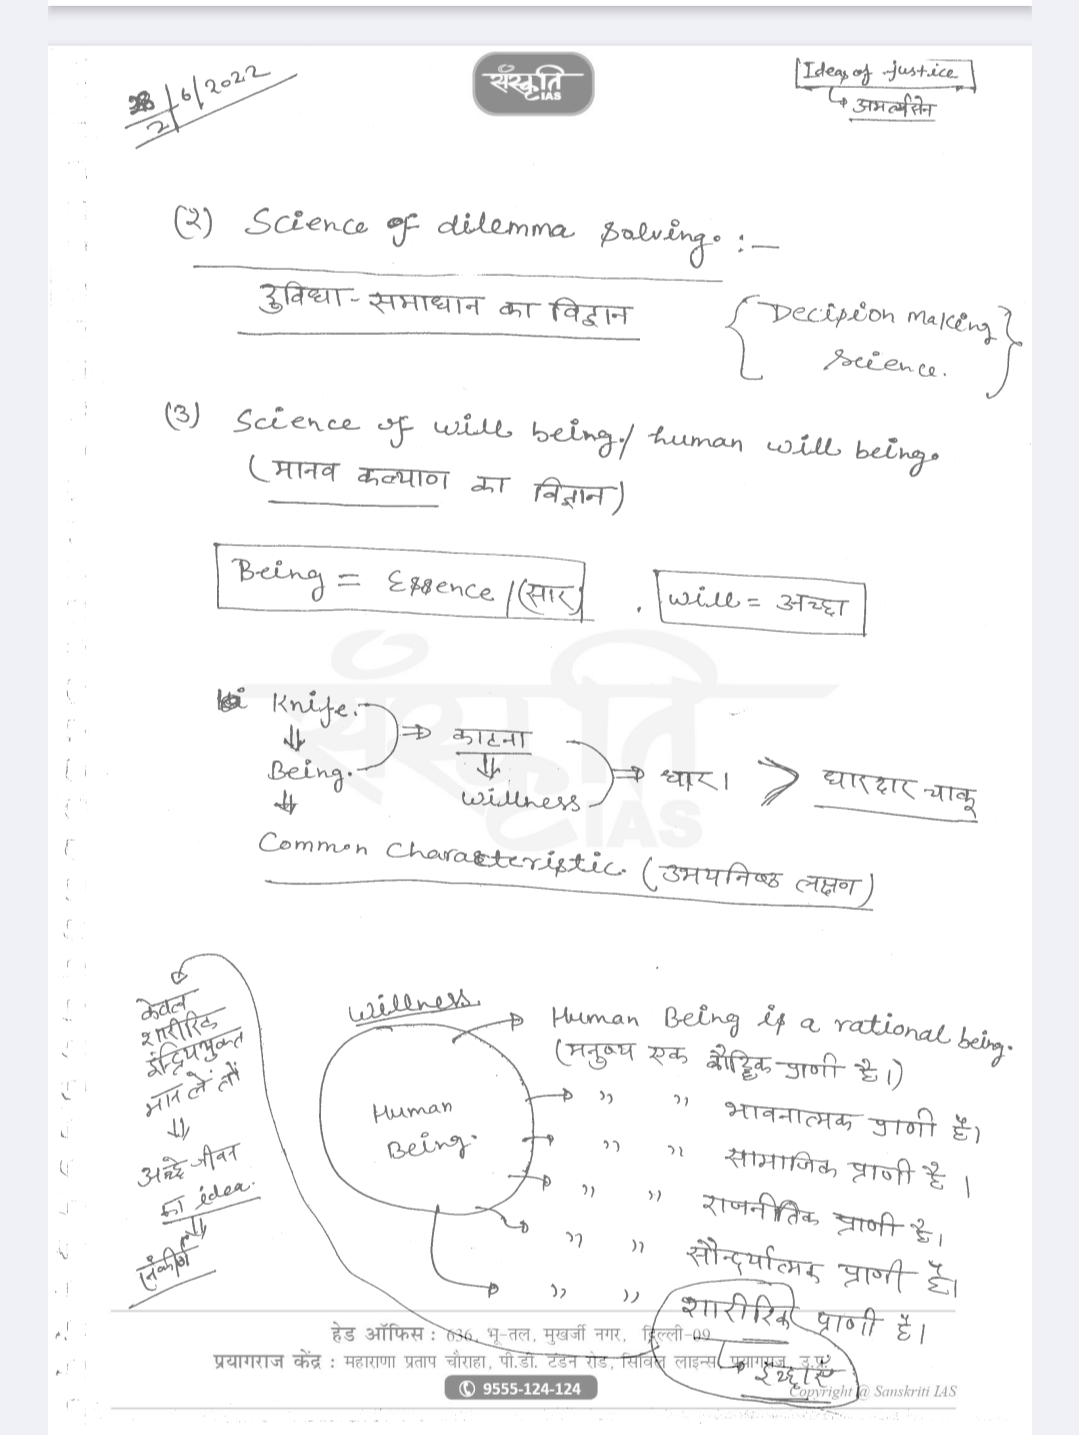 28/6/2022
2
संस्कृति
IAS
Ideas of justice
↳ अमर्त्यसेन
(2) Science of dilemma solving. :—
दुविधा-समाधान का विज्ञान
{Decision making
science.}
(3) Science of will being / human will being.
(मानव कल्याण का विज्ञान)
Being = Essence / (सार) , will = अच्छा
Knife. ⇒ काटना
Being. willness ⇒ धार। > धारदार चाकू
Common characteristic. (उभयनिष्ठ लक्षण)
willness
Human
Being.
→ Human Being is a rational being.
(मनुष्य एक बौद्धिक प्राणी है।)
→ ,, ,, भावनात्मक प्राणी है।
→ ,, ,, सामाजिक प्राणी है।
→ ,, ,, राजनीतिक प्राणी है।
→ ,, ,, सौन्दर्यात्मक प्राणी है।
→ ,, ,, शारीरिक प्राणी है।
↳ इच्छाएं
केवल
शारीरिक
इन्द्रिययुक्त
मान लें तो
⇓
अच्छे जीवन
का idea.
⇓
संकीर्ण
हेड ऑफिस : 636, भू-तल, मुखर्जी नगर, दिल्ली-09
प्रयागराज केंद्र : महाराणा प्रताप चौराहा, पी.डी. टंडन रोड, सिविल लाइन्स, प्रयागराज, उ.प्र.
9555-124-124
Copyright @ Sanskriti IAS
संस्कृति
IAS